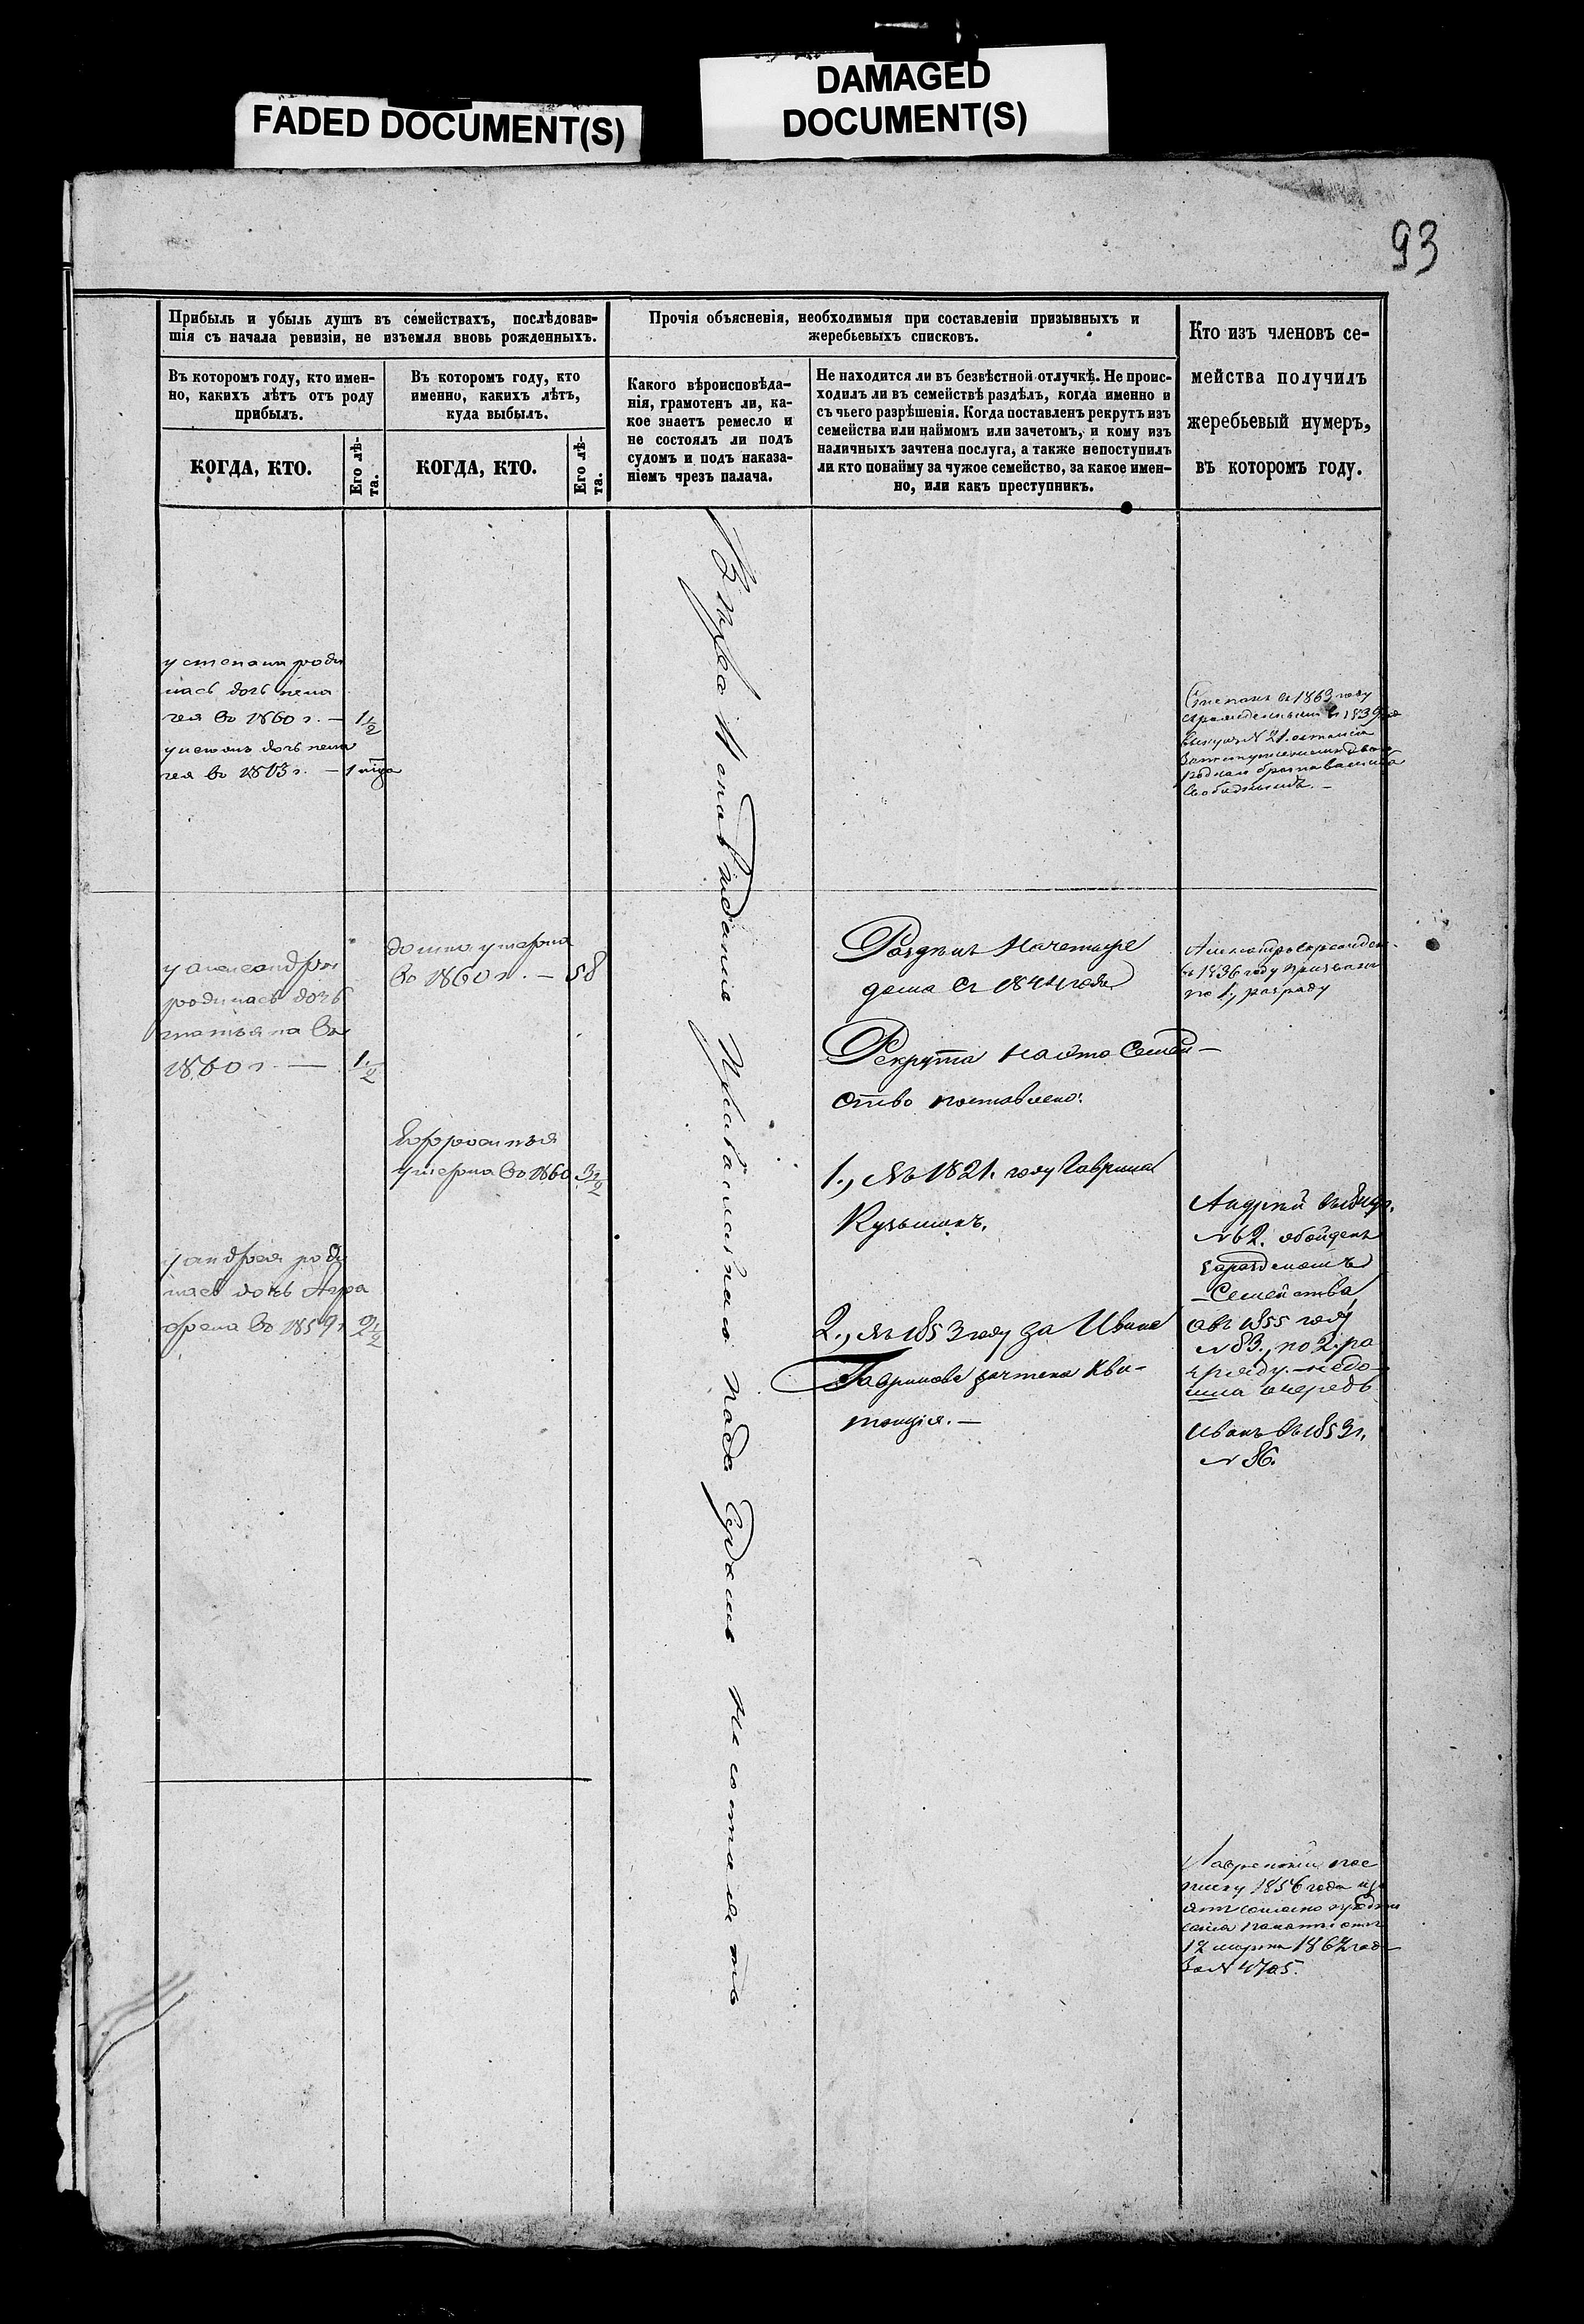 FADED DOCUMENT(S)
DAMAGED
DOCUMENT(S)
93
Прибыль и убыль душъ въ семействахъ, послѣдовав-
шія съ начала ревизіи, не изъемля вновь рожденныхъ.
Прочія объясненія, необходимыя при составленіи призывныхъ и
жеребьевыхъ списковъ.
Кто изъ членовъ се-
мейства получилъ
жеребьевый нумеръ,
въ которомъ году.
Въ которомъ году, кто имен-
но, какихъ лѣтъ отъ роду
прибылъ.
Въ которомъ году, кто
именно, какихъ лѣтъ,
куда выбылъ.
Какого вѣроисповѣда-
нія, грамотенъ ли, ка-
кое знаетъ ремесло и
не состоялъ ли подъ
судомъ и подъ наказа-
ніемъ чрезъ палача.
Не находится ли въ безвѣстной отлучкѣ. Не проис-
ходилъ ли въ семействѣ раздѣлъ, когда именно и
съ чьего разрѣшенія. Когда поставленъ рекрутъ изъ
семейства или наймомъ или зачетомъ, и кому изъ
наличныхъ зачтена послуга, а также непоступилъ
ли кто понайму за чужое семейство, за какое имен-
но, или какъ преступникъ.
КОГДА, КТО.
Его лѣ-
та.
КОГДА, КТО.
Его лѣ-
та.
у степана роди
лась дочь пела
гея во 1860 г. — 1/2
дочь пела
гея во 1863 г. — 1
Степанъ въ 1863 году
№ 21.
роднаго брата
свободнымъ. —
у александра
родилась дочь
татьяна во
1860 г. — 1/2
домна умерла
во 1860 г. — 58
Раздѣлъ на четыре
дома съ 1844 года
Александръ
въ 1836 году призванъ
по 1, разряду
Рекрута на это Семей-
ство поставлено:
Ефросинья
умерла во 1860 3 1/2
1., Въ 1821. году Гаврила
Кузьминъ.
у андрея роди
лась дочь Агра
фена во 1859 г 2 1/2
2., въ 1853 году за Ивана
Гаврилова зачтена Кви-
танція. —
Андрей
№ 62. обойденъ
Семейства,
въ 1855 году
№ 83., по 2. ра
зряду. — недо-
шла очередь
Иванъ въ 1853 г.
№ 86.
Исповѣданія Православнаго подъ Судомъ не состоятъ
Лаврентій
1856 года
согласно
17 марта 1862 года
за № 4705.